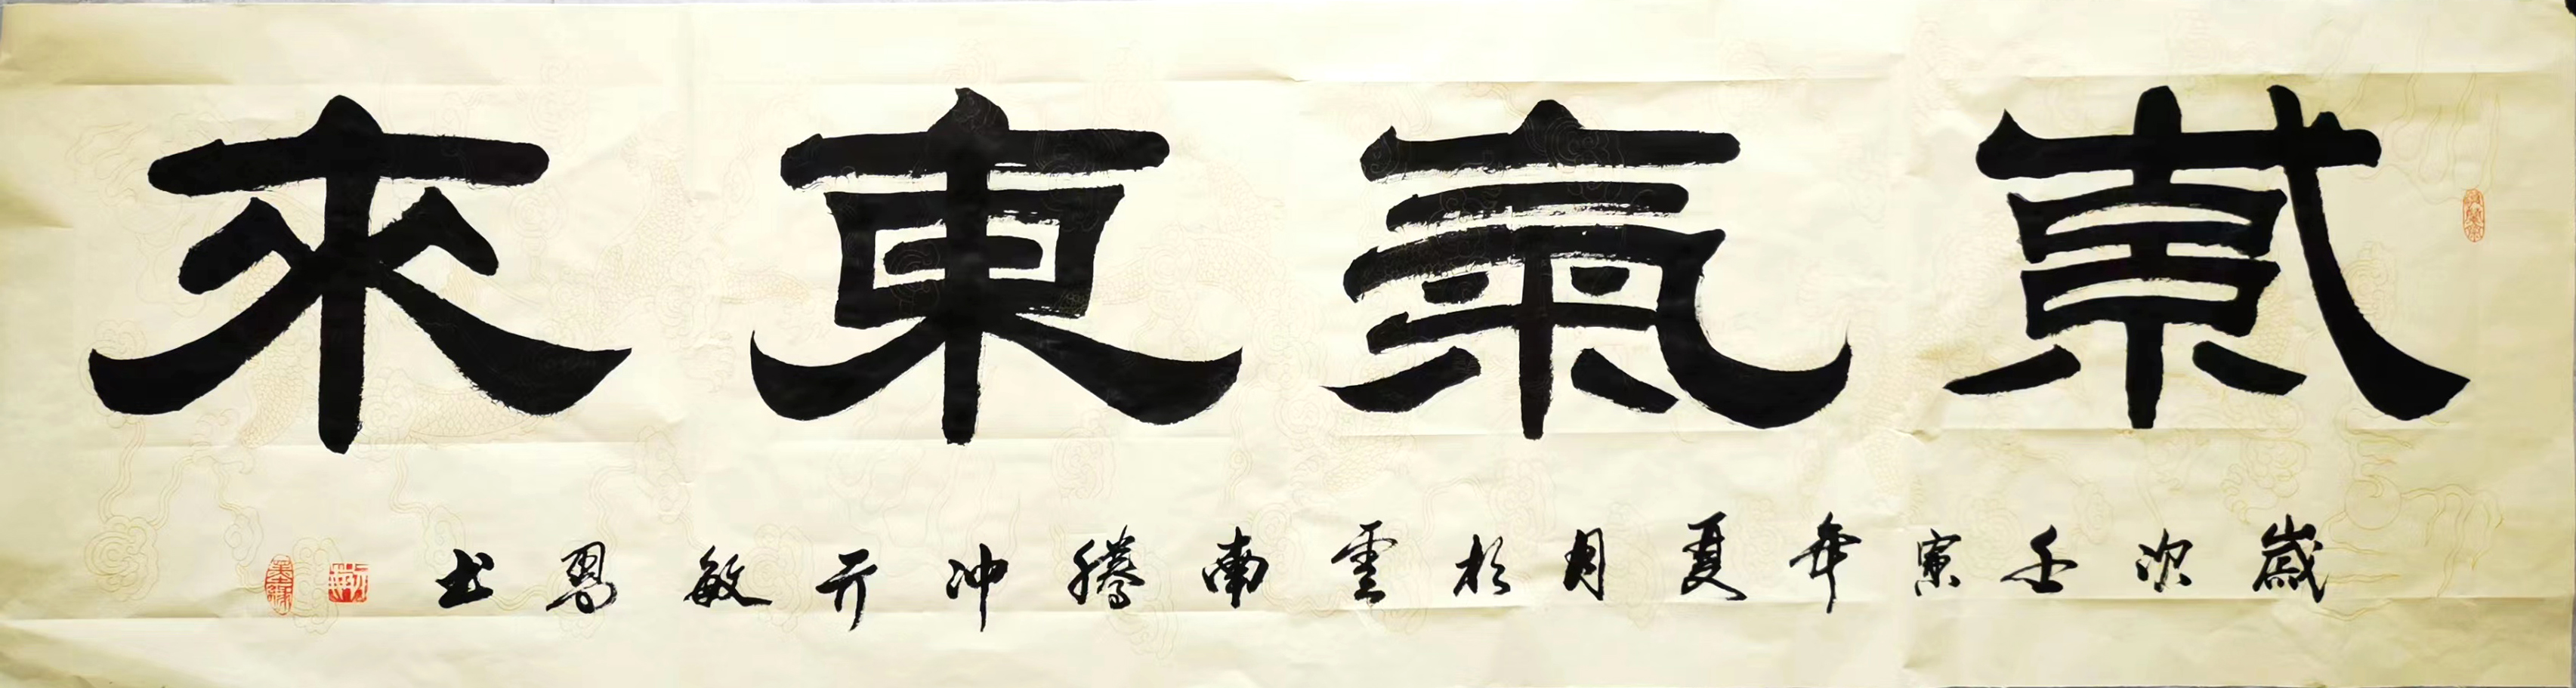 氣東來
歲次壬寅年夏月於雲南騰冲亓敏書